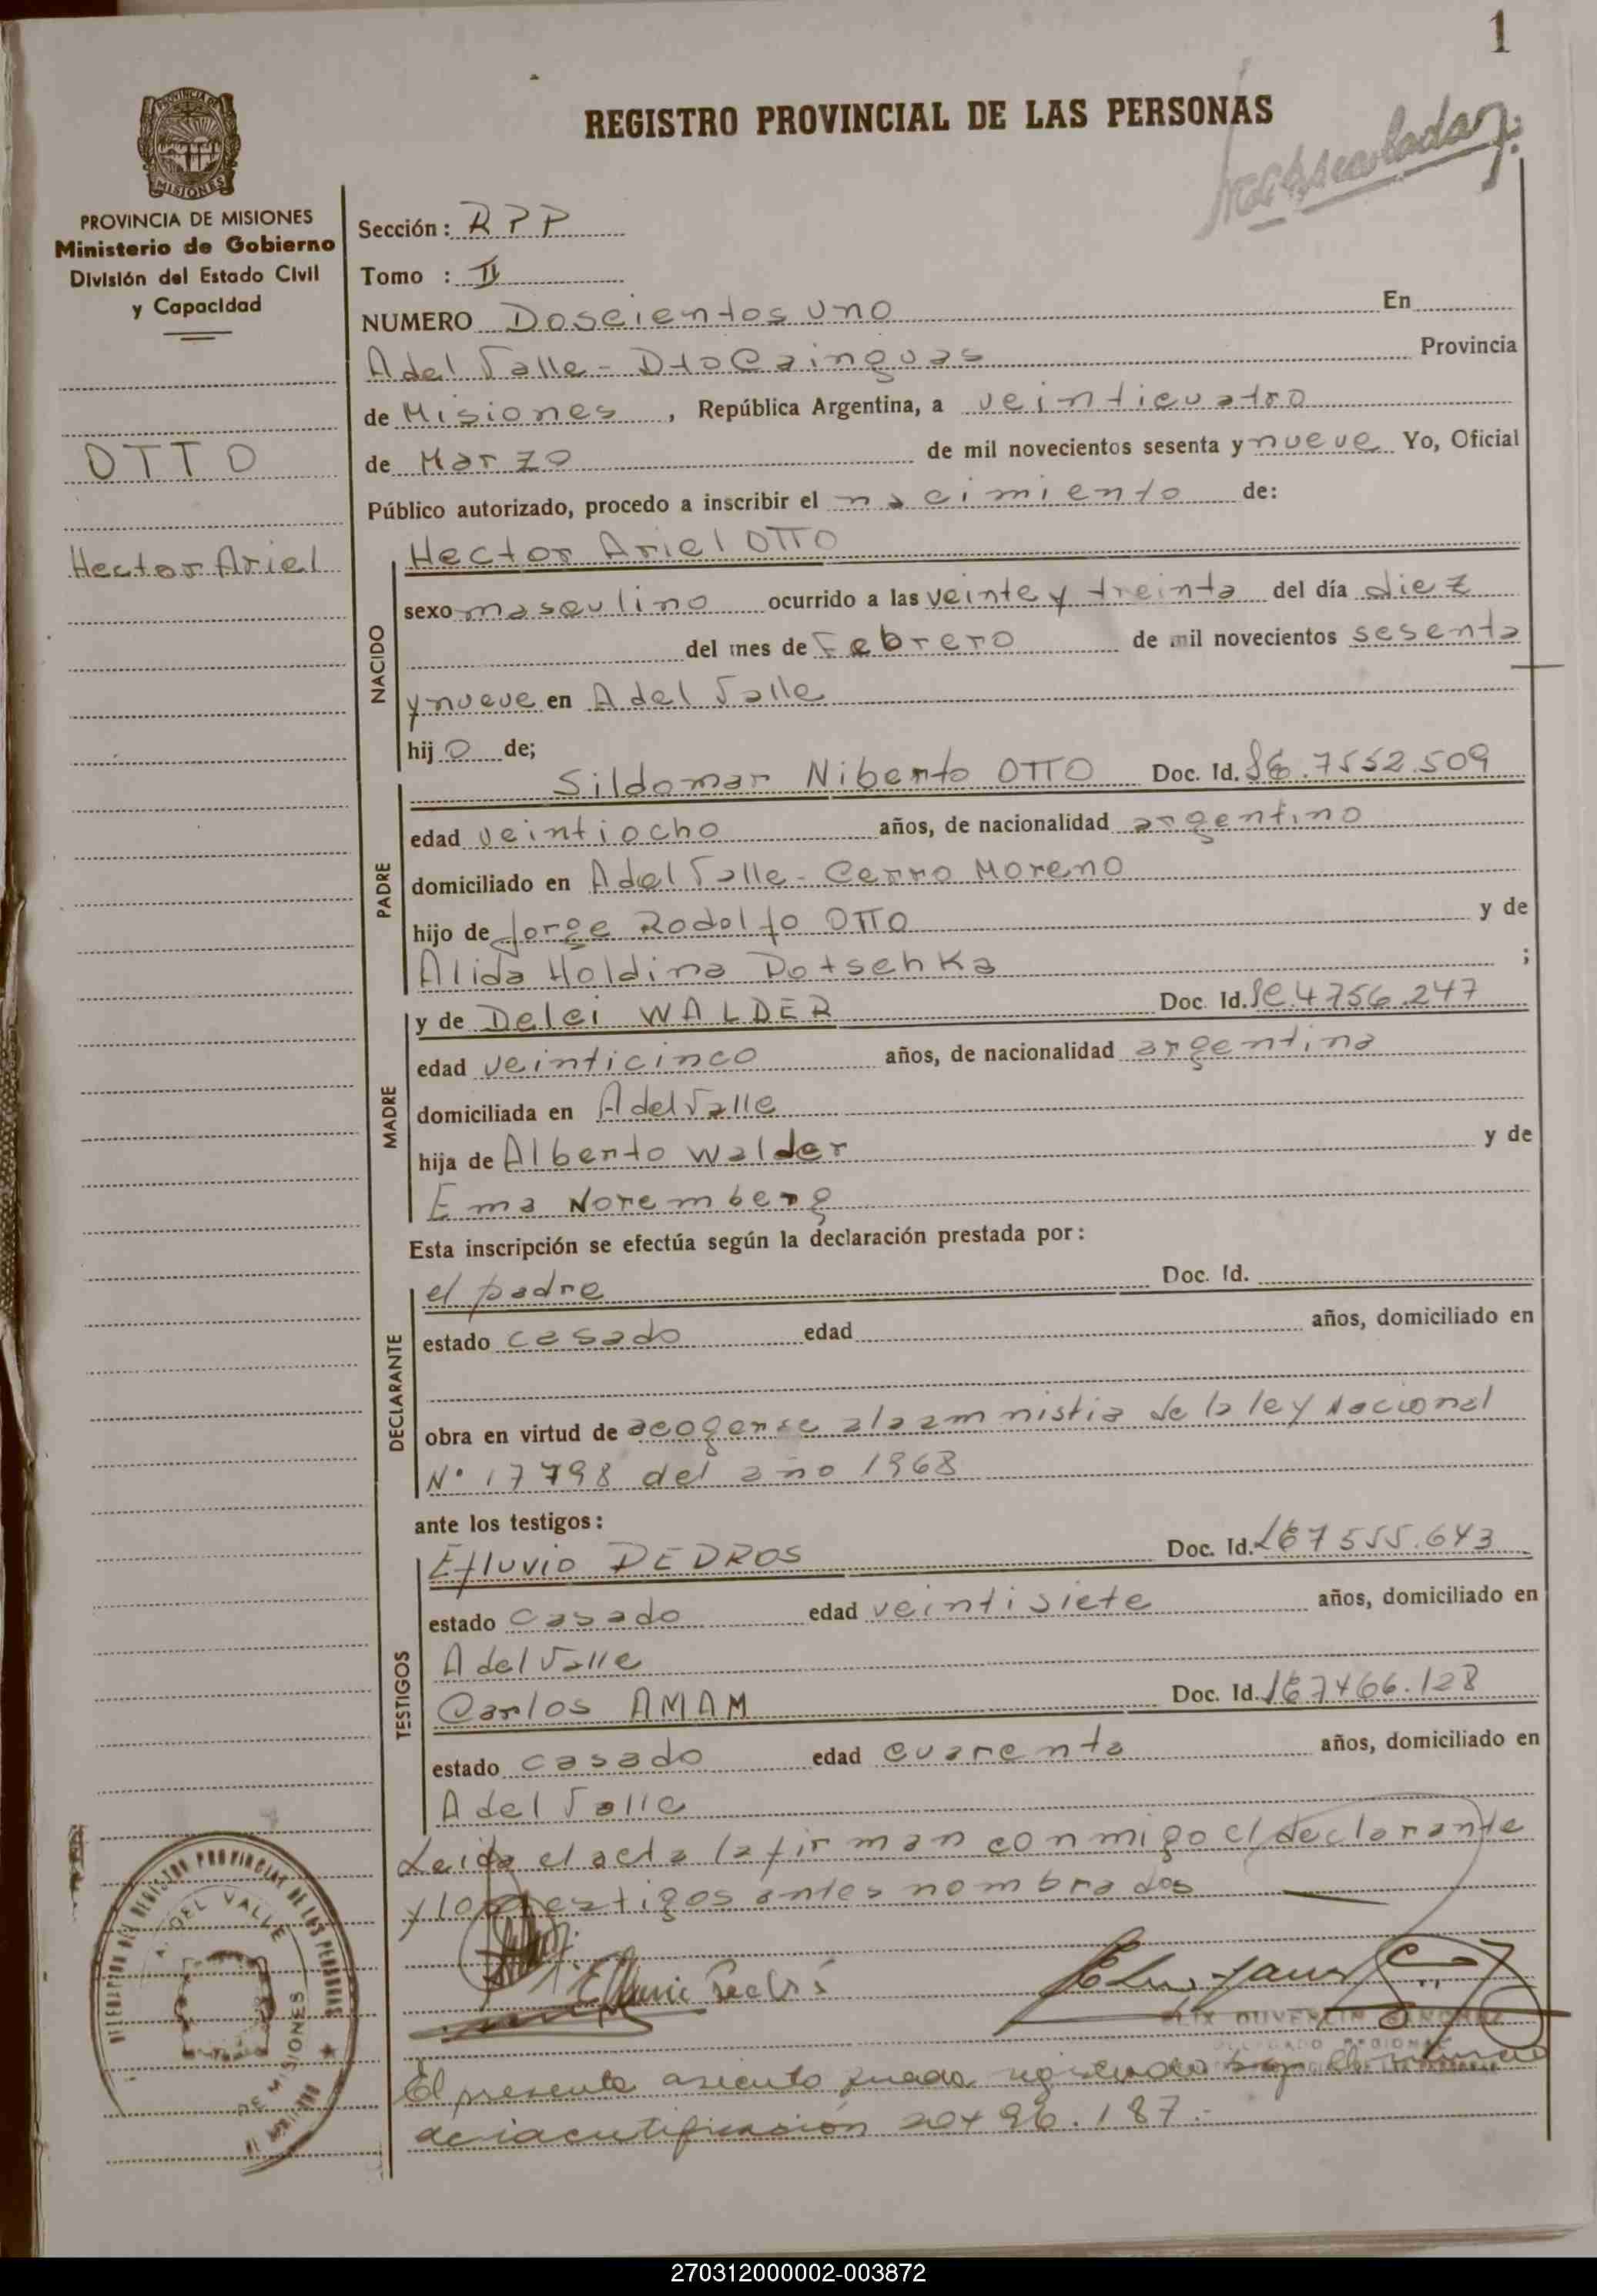 1
REGISTRO PROVINCIAL DE LAS PERSONAS
PROVINCIA DE MISIONES
Ministerio de Gobierno
División del Estado Civil
y Capacidad
OTTO
Hector Ariel
Sección: RPP
Tomo : II
NUMERO Doscientos uno En
A del Valle - Dto Cainguas Provincia
de Misiones, República Argentina, a veinticuatro
de Marzo de mil novecientos sesenta y nueve Yo, Oficial
Público autorizado, procedo a inscribir el nacimiento de:
NACIDO
Hector Ariel OTTO
sexo masculino ocurrido a las veinte y treinta del día diez
del mes de Febrero de mil novecientos sesenta
y nueve en A del Valle
hijo de;
PADRE
Sildomar Niberto OTTO Doc. Id. 7552.509
edad veintiocho años, de nacionalidad argentino
domiciliado en A del Valle - Cerro Moreno
hijo de Jorge Rodolfo OTTO y de
Alida Holdina Potschka ;
MADRE
y de Delci WALDER Doc. Id. 4756.247
edad veinticinco años, de nacionalidad argentina
domiciliada en A del Valle
hija de Alberto Walder y de
Ema Noremberg
Esta inscripción se efectúa según la declaración prestada por:
DECLARANTE
el padre Doc. Id.
estado casado edad años, domiciliado en
obra en virtud de acogerse a la amnistia de la ley Nacional
N° 17798 del año 1968
ante los testigos:
TESTIGOS
Efluvio PEDROS Doc. Id. 7555.643
estado casado edad veintisiete años, domiciliado en
A del Valle
Carlos AMAM Doc. Id. 7466.128
estado casado edad cuarenta años, domiciliado en
A del Valle
Leida el acta la firman conmigo el declarante
y los testigos antes nombrados
DELEGACION DEL REGISTRO PROVINCIAL DE LAS PERSONAS
A. DEL VALLE
DE MISIONES
El presente asiento queda registrado bajo el numero
de identificasión 20496.187.-
270312000002-003872